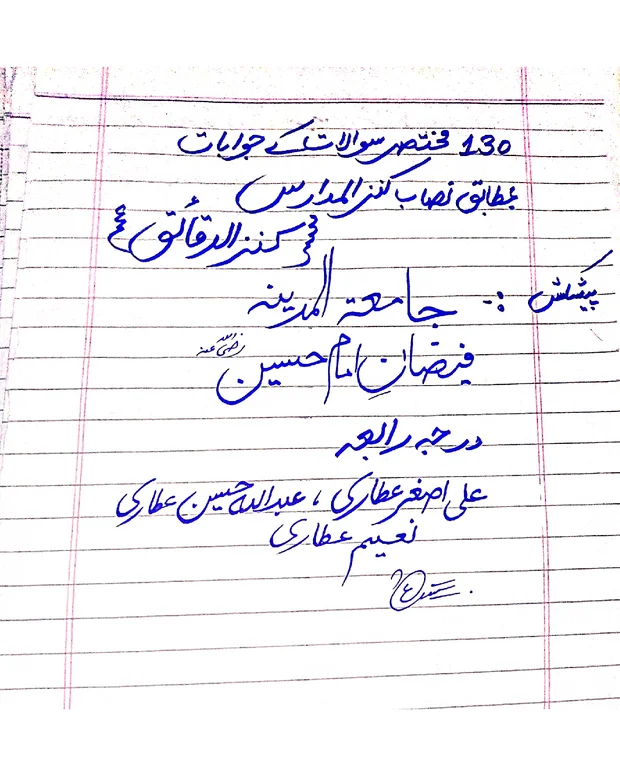 130 مختصر سوالات کے جوابات
بمطابق نصاب کنز المدارس
{کنز الدقائق}
پیشکش :- جامعۃ المدینہ
فیضانِ امام حسین رضی اللہ عنہ
درجہ رابعہ
علی اصغر عطاری ، عبداللہ حسین عطاری
نعیم عطاری